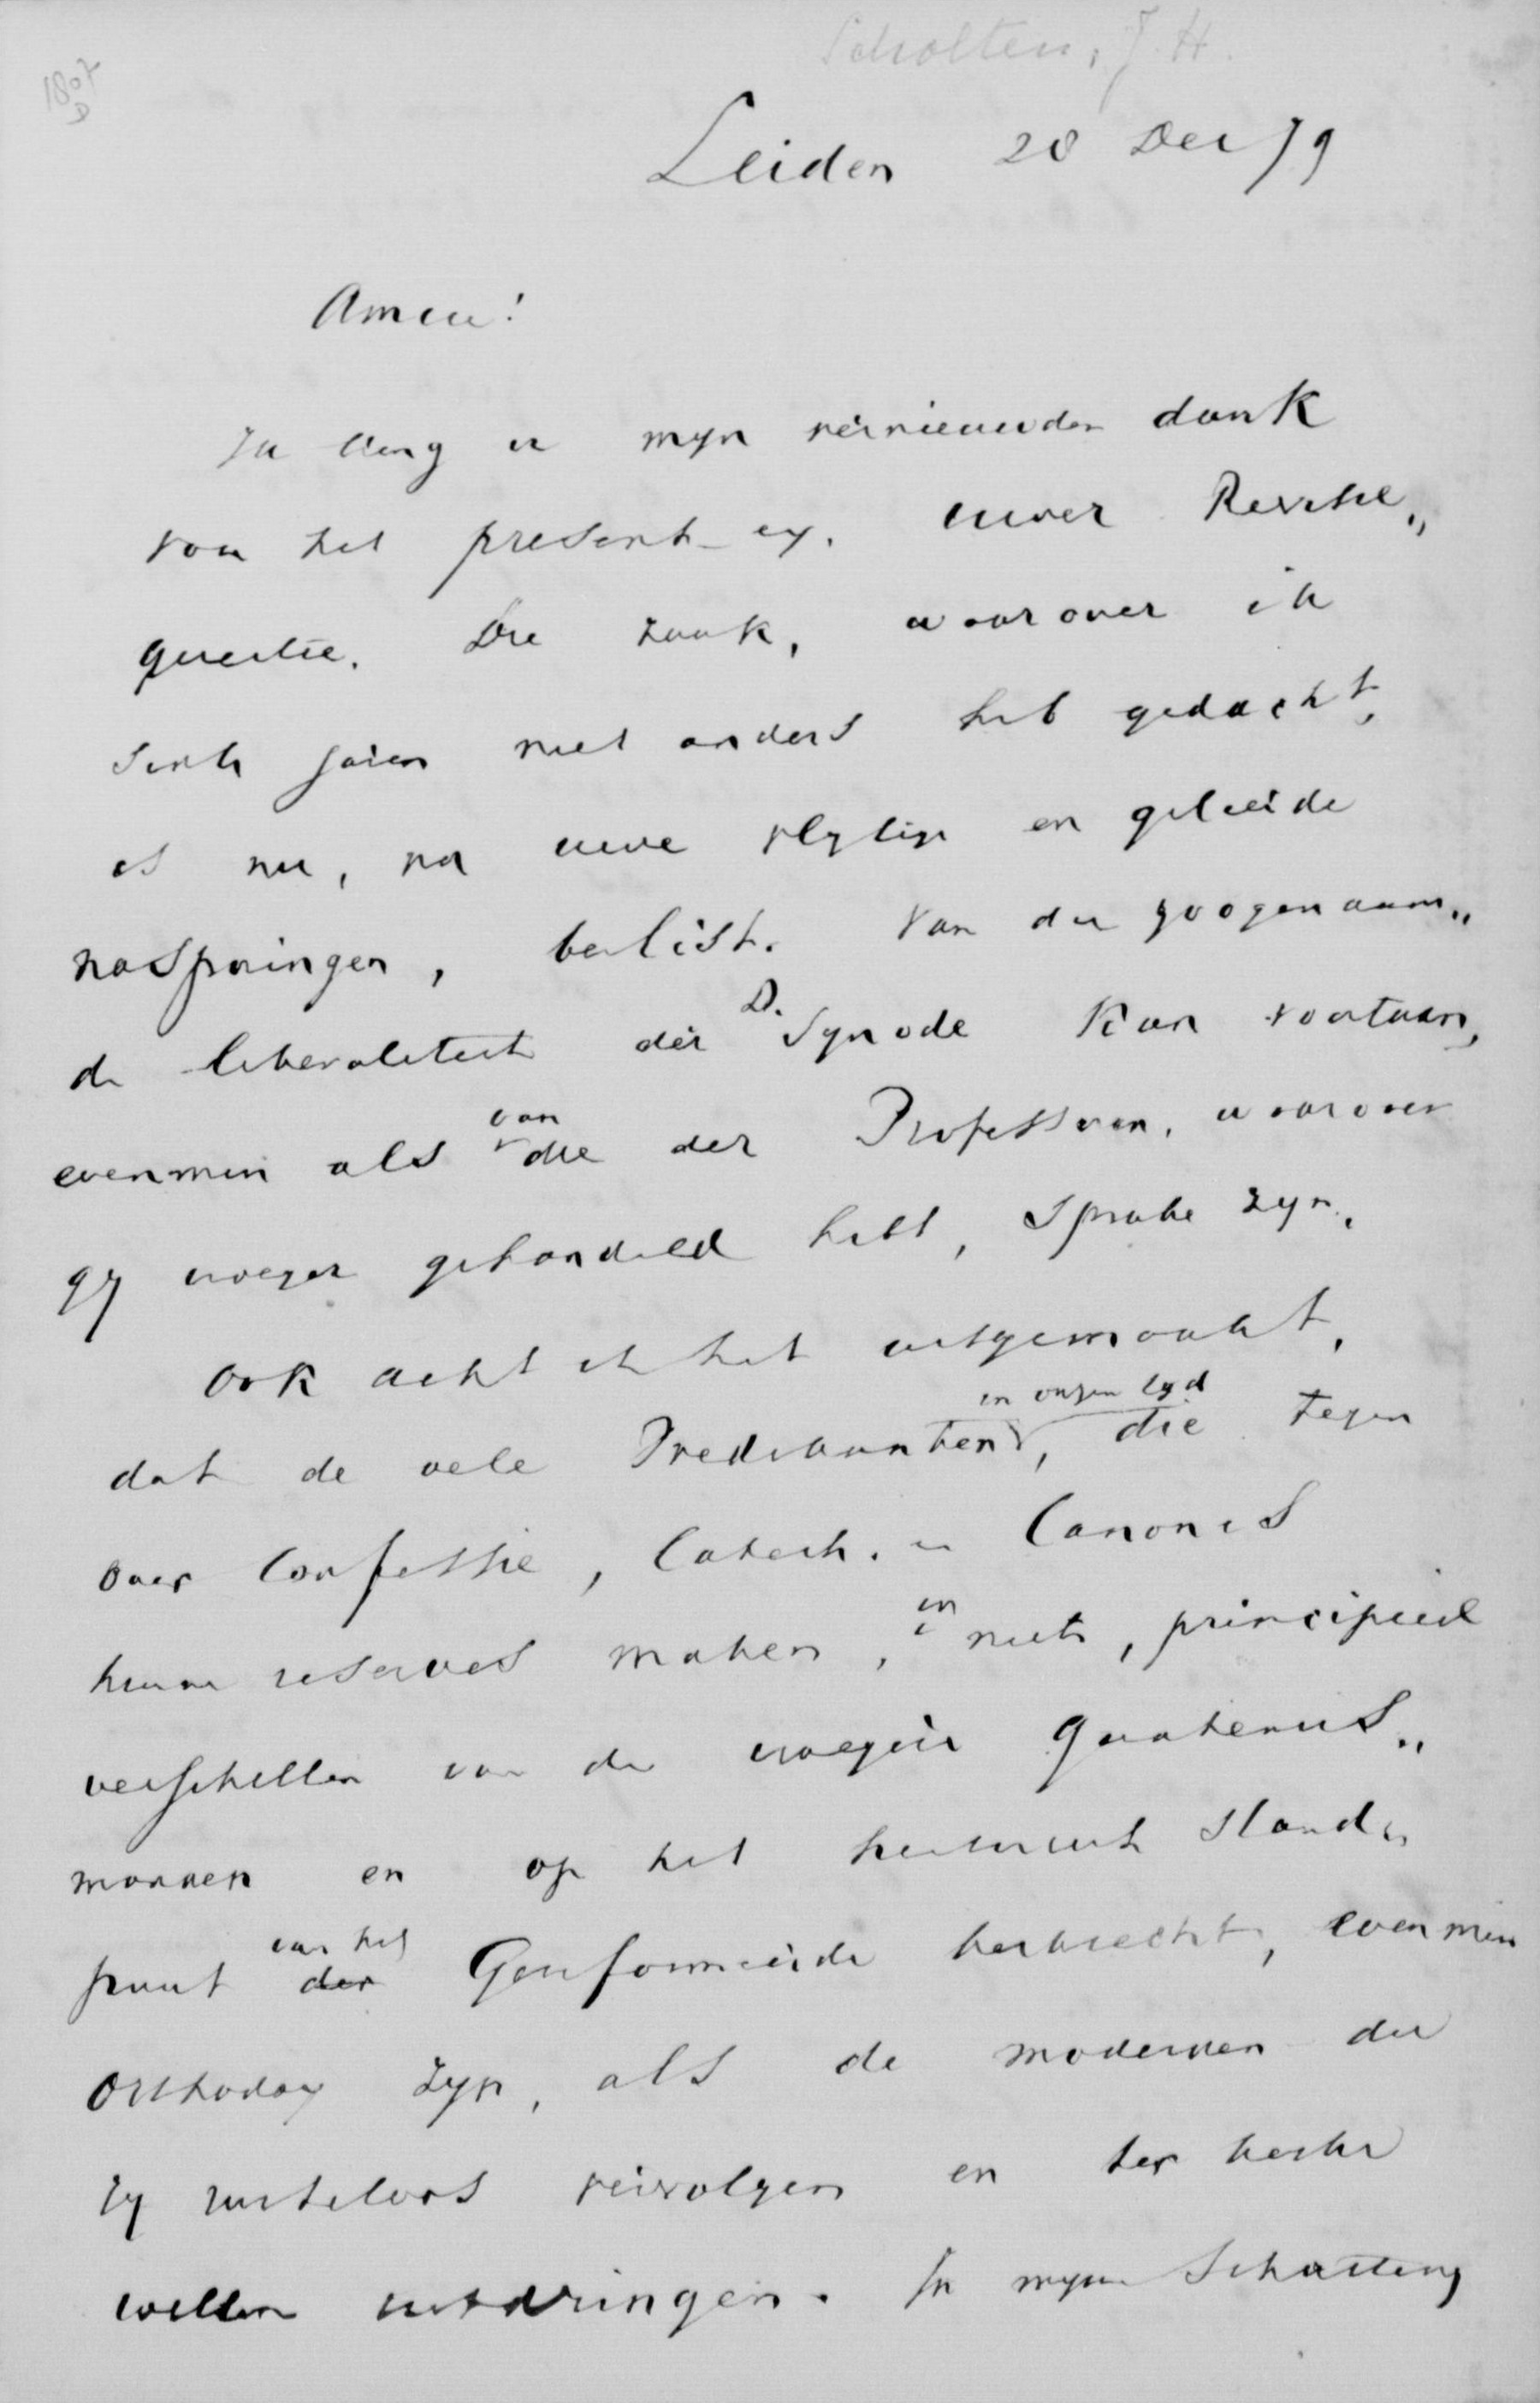 Scholten, J. H.
1807
D
Leiden 28 Dec 79
Amice!
Ik breng u mijn vernieuwden dank
voor het present-ex. uwer Revisie„
questie. Die zaak, waarover ik
sints jaren niet anders heb gedacht,
is nu, na uwe vlytige en geleerde
nasporingen, beslist. Van de zoogenaam„
de liberaliteit der D. Synode kan voortaan,
evenmin als van die der Professoren, waarover
gy vroeger gehandeld hebt, sprake zyn.
Ook acht ik het uitgemaakt,
dat de vele Predikanten in onzen tyd, die tegen
over Confessie, Catech. en Canones
hunne reserves maken, in niets, principieel
verschillen van de vroegere quatenus„
mannen en op het historisch stand„
punt der van het Gereformeerde kerkrecht, evenmin
orthodox zyn, als de modernen die
zy rusteloos vervolgen en ter kerke
willen uitdringen. In myne schatting